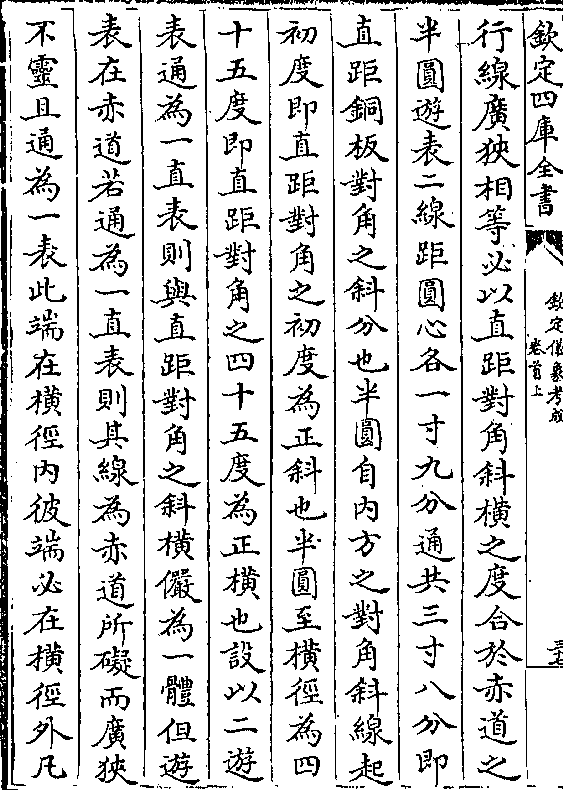 欽定四庫全書
欽定儀象考成
卷首上
行線廣狹相等必以直距對角斜橫之度合於赤道之
半圓遊表二線距圓心各一寸九分通共三寸八分即
直距銅板對角之斜分也半圓自内方之對角斜線起
初度即直距對角之初度為正斜也半圓至橫徑為四
十五度即直距對角之四十五度為正橫也設以二遊
表通為一直表則與直距對角之斜橫儼為一體但遊
表在赤道若通為一直表則其線為赤道所礙而廣狹
不靈且通為一表此端在橫徑内彼端必在橫徑外凡